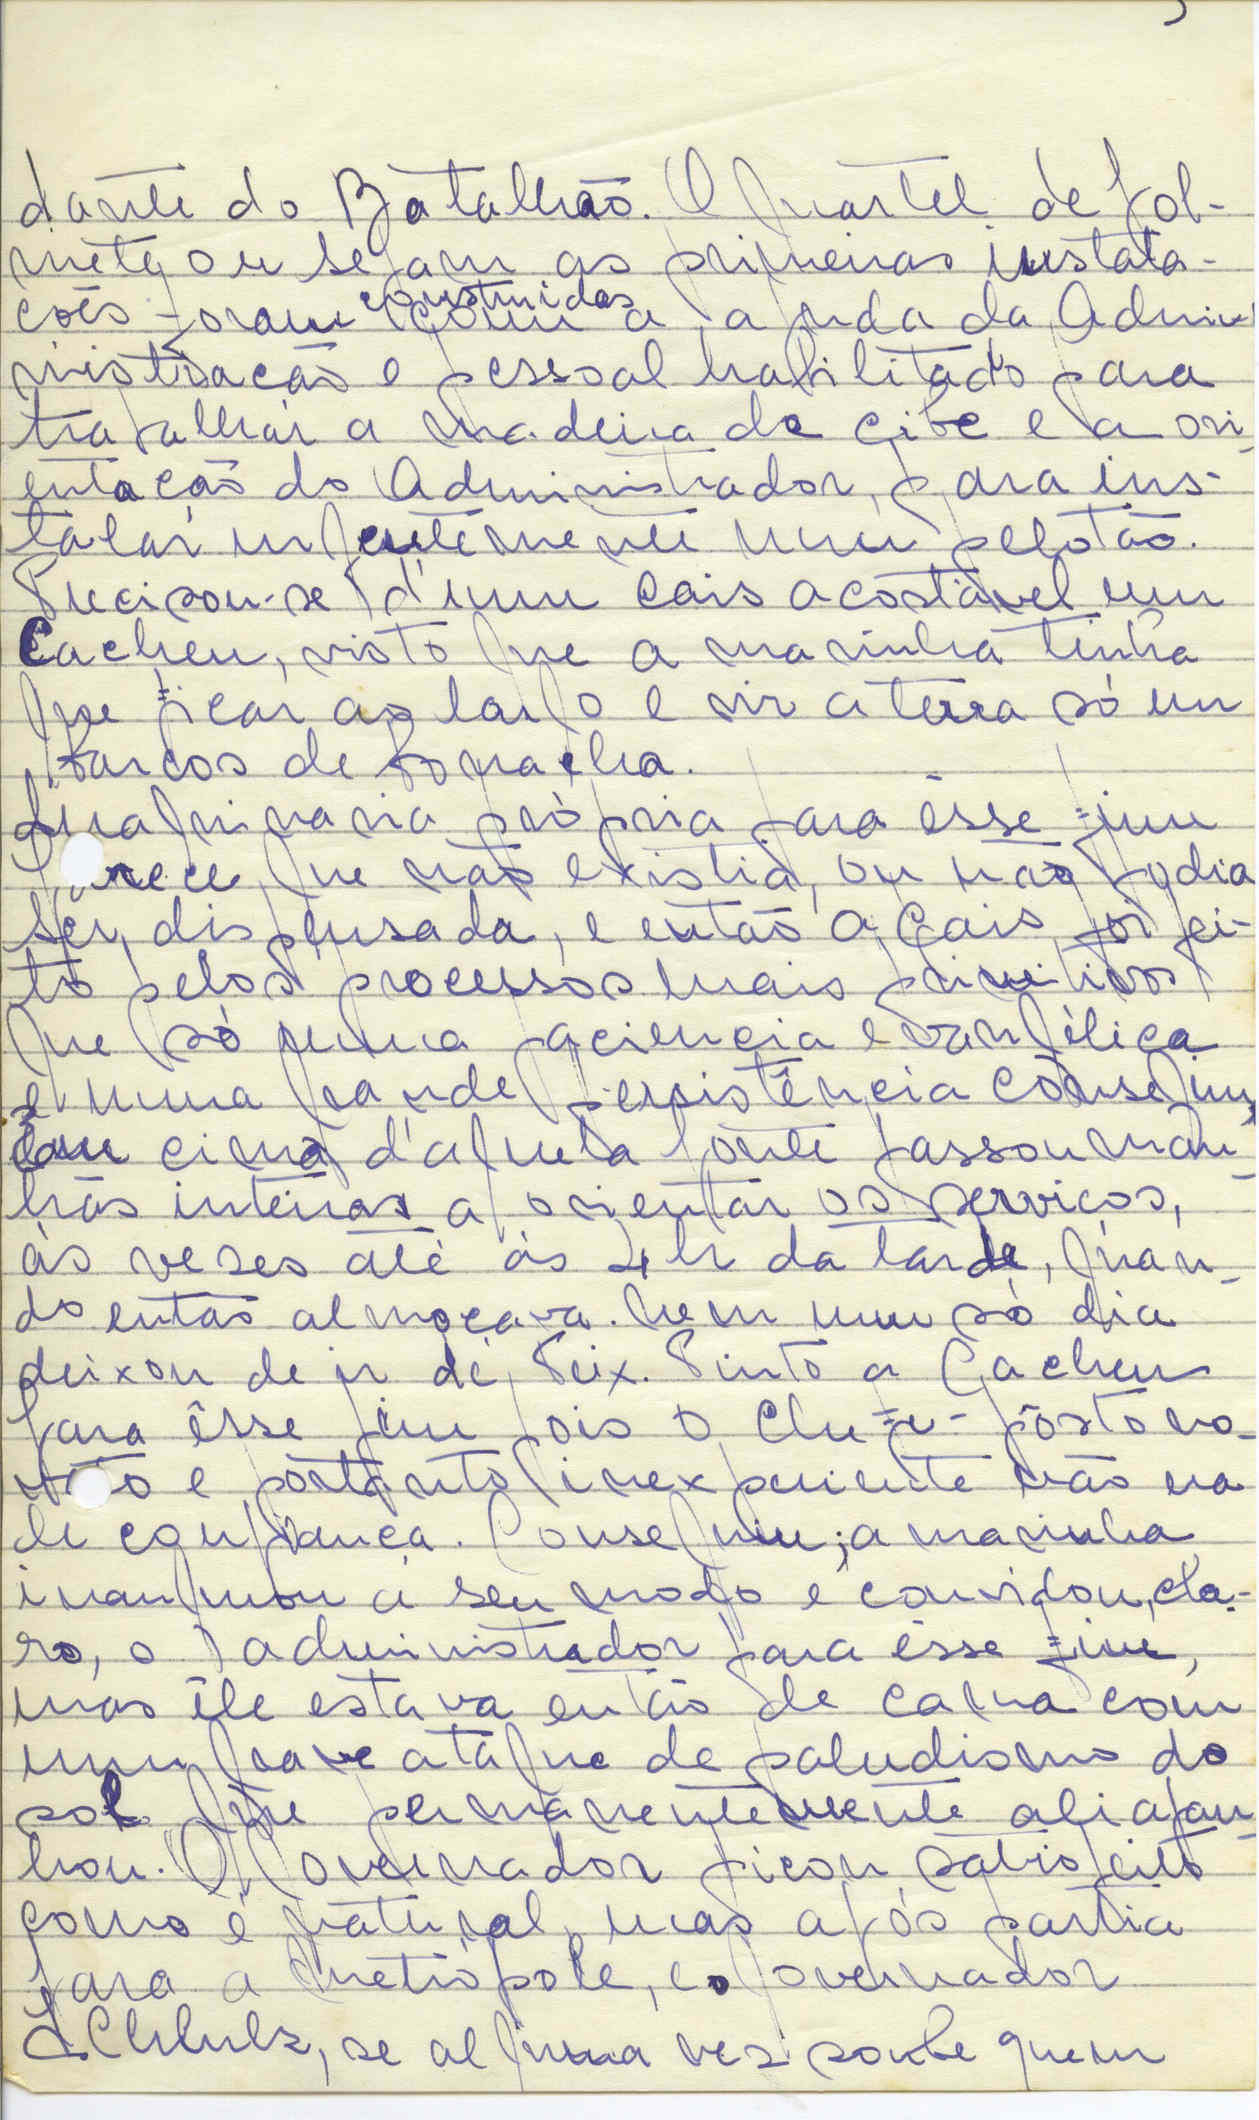 dante do Batalhão. O quartel de Jol-
mete ou sejam as primeiras instala-
ções foram construidas com a ajuda da Admi
nistração e pessoal habilitado para
trabalhar a madeira de cibe e a ori-
entação do Administrador, para ins-
talar urgentemente um pelotão.
Precisou-se d'um cais acostável em
Cacheu, visto que a marinha tinha
que ficar ao largo e vir a terra só em
barcos de borracha.
Engrenaria própria para êsse fim
parece que não existia, ou não podia
ser dispensada, e então o cais foi fei-
to pelos processos mais primitivos
que só numa paciencia evangélica
e numa grande persistência conseguiu,
Em cima d'aquela ponte passou man-
hãs inteiras a orientar os serviços,
às vezes até às 4 h da tarde, quan-
do então almoçava. Nem um só dia
deixou de ir de Teix. Pinto a Cacheu
para êsse fim pois o Chefe posto no-
vato e portanto inexperiente não era
de confiança. Conseguiu; a marinha
inaugurou a seu modo e convidou, cla-
ro, o administrador para êsse fim,
mas êle estava então de cama com
um grave ataque de paludismo do
sol que permanentemente ali apan-
hou. O Governador ficou satisfeito
como é natural, mas após partia
para a metrópole, e o governador
Schulz, se alguma vez soube quem